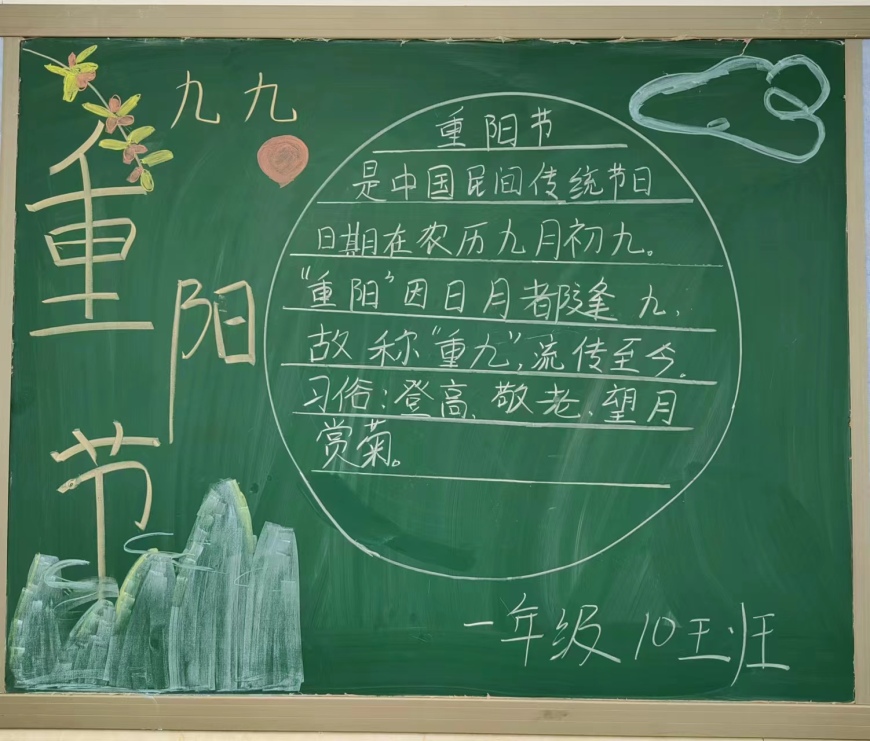 九九
重阳节
重阳节
是中国民间传统节日
日期在农历九月初九。
"重阳"因日月都逢九,
故称"重九",流传至今。
习俗:登高、敬老、望月
赏菊。
一年级10班